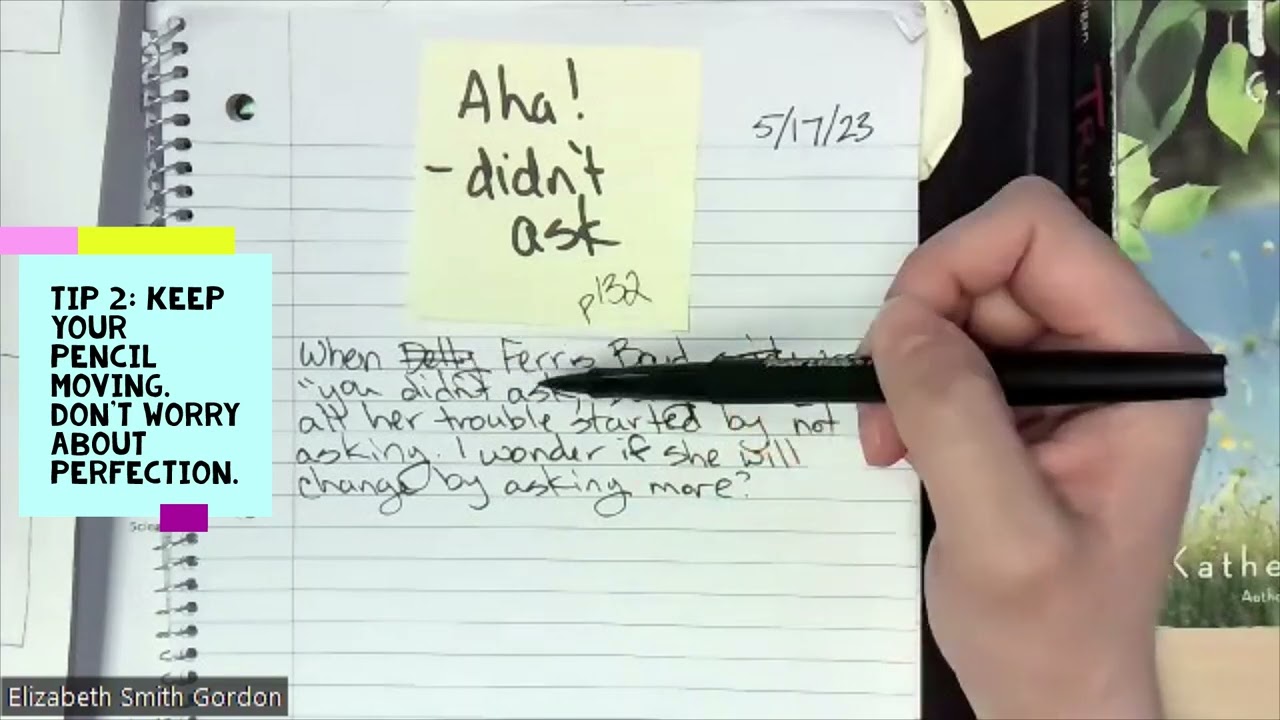 Aha!
- didn't
ask
p132
5/17/23
TIP 2: KEEP
YOUR
PENCIL
MOVING.
DON'T WORRY
ABOUT
PERFECTION.
When Ferris Boyd
"you didn't ask,
all her trouble started by not
asking. I wonder if she will
change by asking more?
Kathe
Autho
Elizabeth Smith Gordon